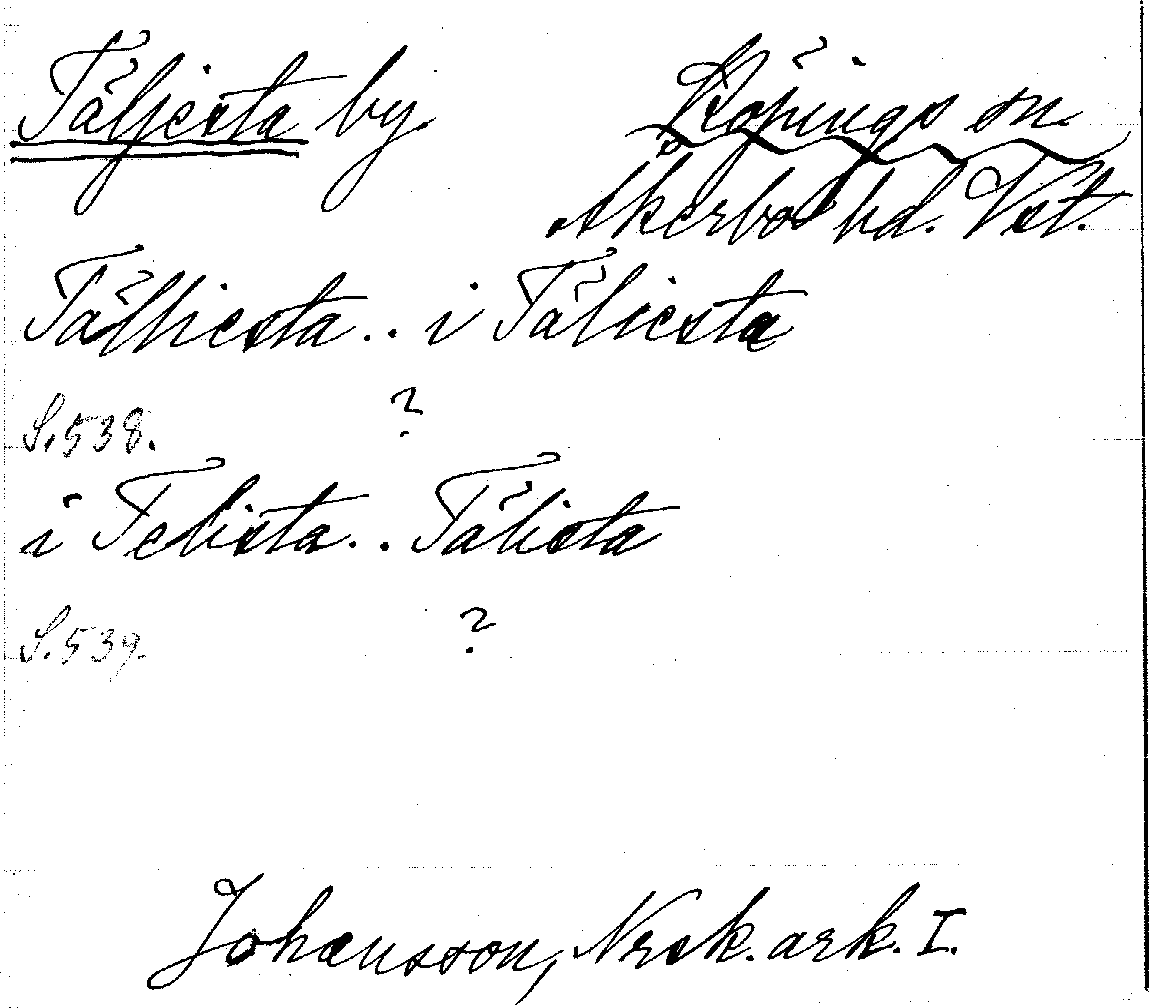 Täljesta by. Köpings sn.
Åkerbo hd. Vstm.
Tälliesta . . i Täliesta
S. 538. ?
i Telista . . Tälista
S. 539. ?
Johansson, Norsk. ark. I.